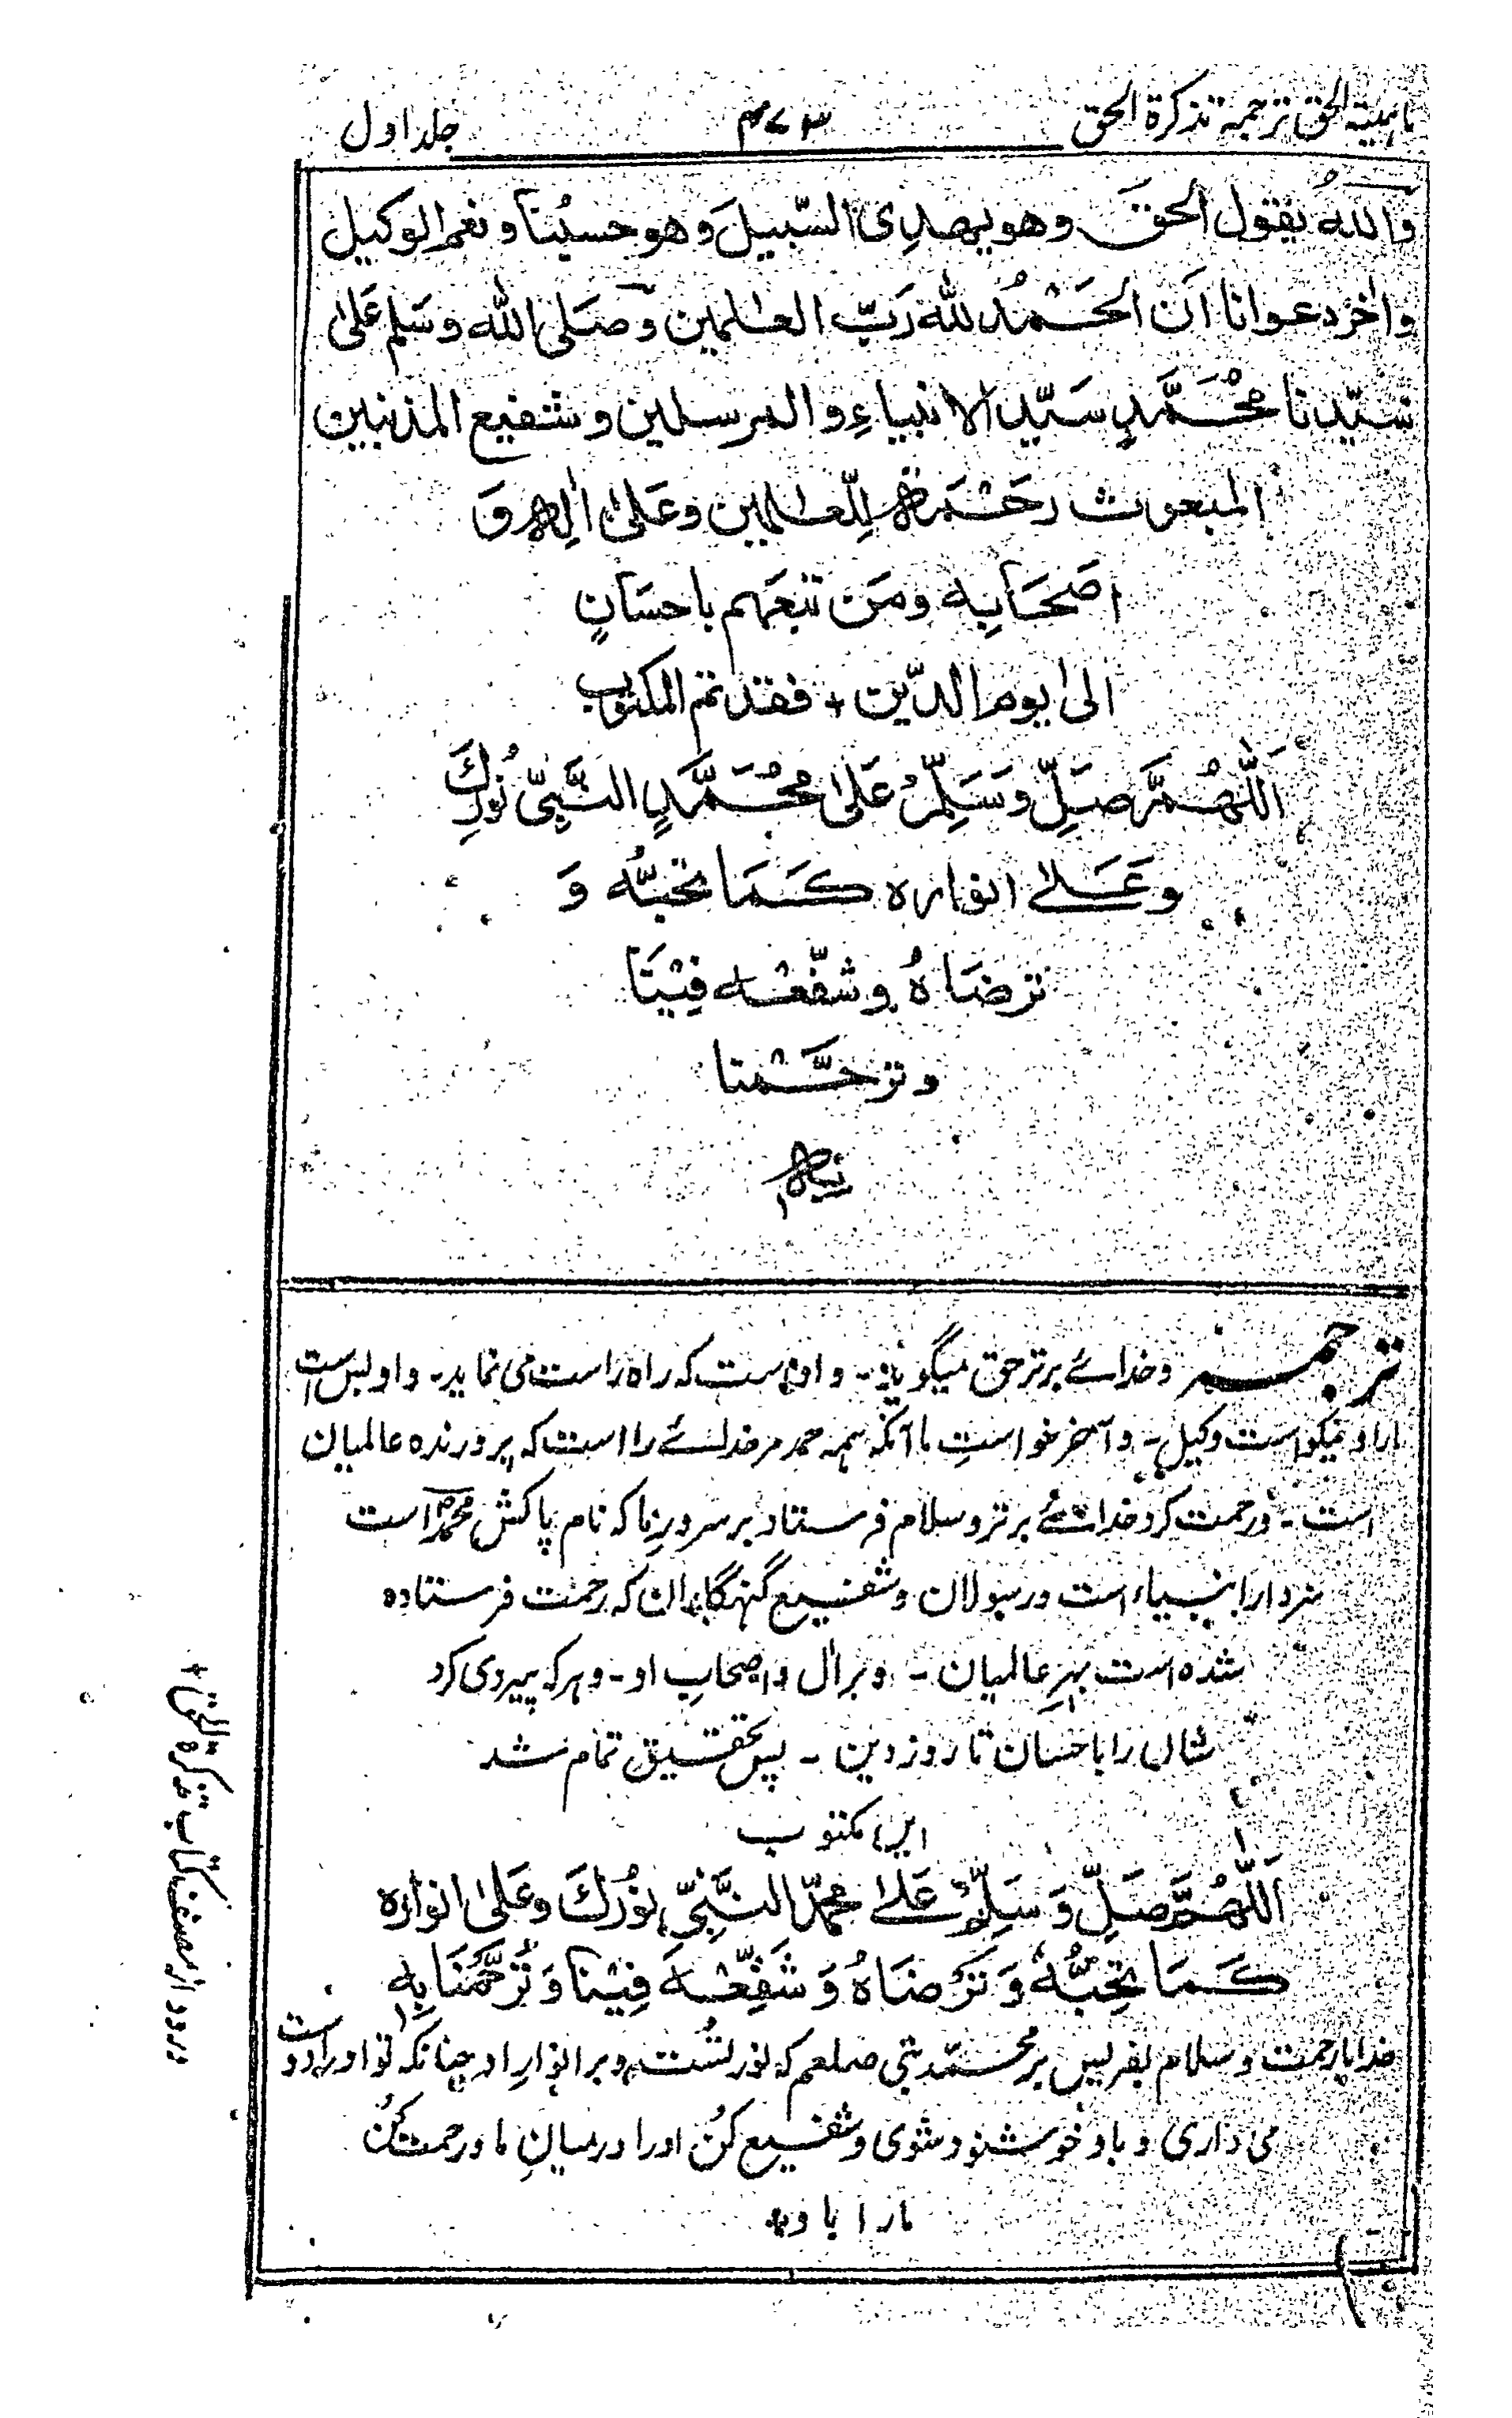 ماهیة الحق ترجمه تذکرة الحق ۴۷۳ جلد اول
والله یقول الحق وهو یهدِی السّبیلَ وهو حسبُنا ونعم الوکیل
واٰخر دعوانا اَن الحَمْدُ للّٰه رَبّ العٰلمین وصَلی اللّٰه وسَلم عَلیٰ
سَیّدنا مُحْمَّدٍ سَیّد الانبیاءِ والمرسلین وشفیع المذنبین
المبعوث رحْمَۃ لِلّعٰلمین وعَلیٰ اٰلِهٖ وَ
اصَحَابِه ومَن تبعَهم باحسَانٍ
الیٰ یوم الدّین + فقد تم المکتوب
اَللّٰهُمَّ صَلِّ وَسَلِّمْ عَلیٰ مُحْمَّدٍ النَّبِیّ نُورِكَ
وعَلےٰ انوارہ کَمَا تحبُّه وَ
ترضَاہُ وشفّعْه فِیْنَا
وترحَّمْنا
بِهٖ
ترجمہ وخدائے برتر حق میگوید۔ و اوست که راہ راست می نماید۔ و او بس است
مارا و نیکو است وکیل۔ و آخر خواستِ ما آنکه همه حمد مر خدائے را است که پرورندہ عالمیان
است۔ و رحمت کرد خدائے برتر و سلام فرستاد بر سرورِ ما که نام پاکش محمدؐ است
سردار انبیاء است و رسولان و شفیع گنهگاران که رحمت فرستادہ
شدہ است بهرِ عالمیان ۔ و بر آل و اصحابِ او۔ و هر که پیروی کرد
شاں را باحسان تا روز دین ۔ پس تحقیق تمام شد
این مکتوب
اَللّٰهُمَّ صَلِّ وَسَلِّمْ عَلےٰ محمّد النَّبِیِّ نُورِكَ وعَلیٰ انوارہ
کَمَا تحِبُّهٗ وَتَرضَاہُ وَشَفِّعْهُ فِیْنَا وَتُرَحَّمْنَا بِهٖ
خدایا رحمت و سلام بفریس بر محمّد نبی صلعم که نور تست و بر انوارِ او چنانکه تو اورا دوست
می داری و باو خوشنود شوی و شفیع کُن اورا درمیانِ ما و رحمت کُن
مارا باو
درود از مصنف کتاب تذکرۃ الحق +